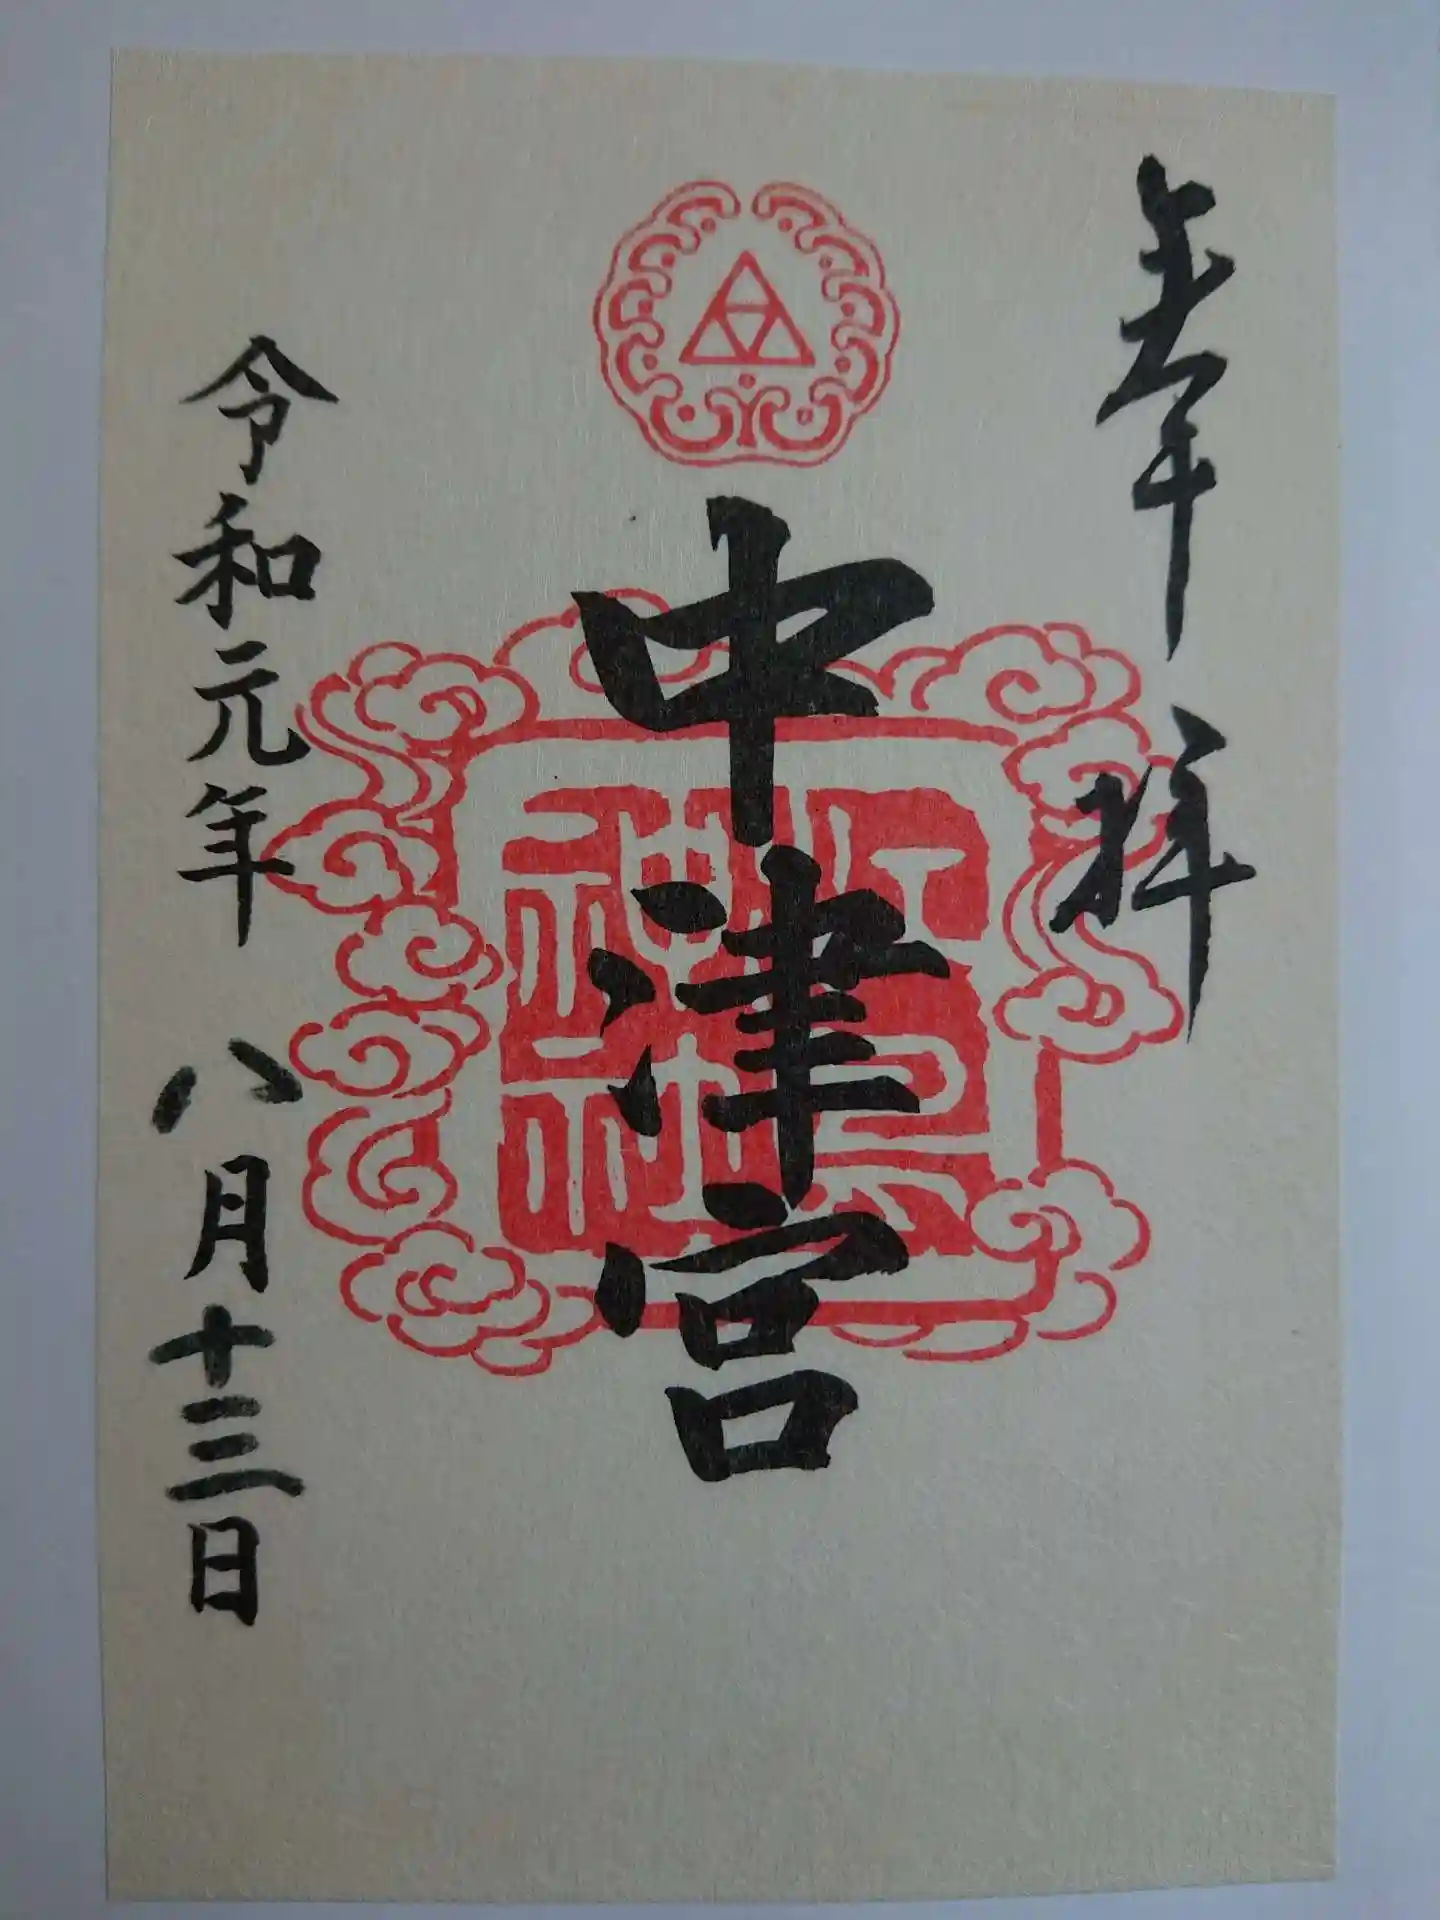 奉拝
中津宮
令和元年八月十三日